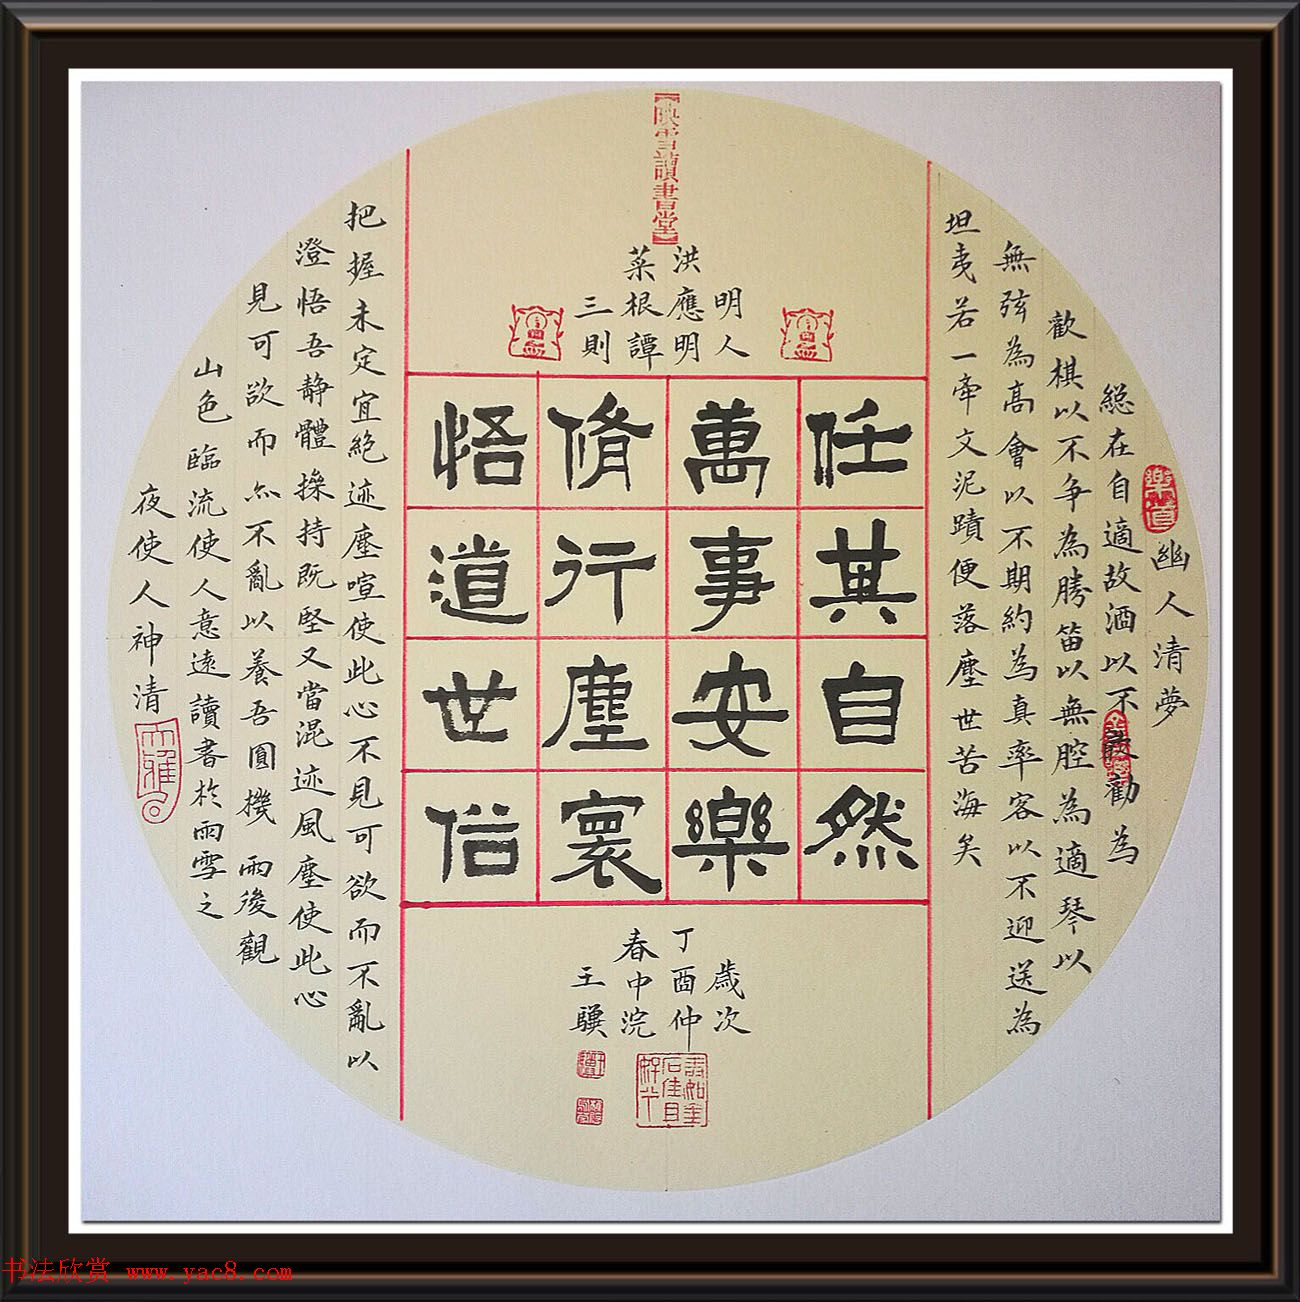 【映雪讀書堂】
明人
洪應明
菜根譚
三則
任其自然
萬事安樂
脩行塵寰
悟道世俗
幽人清夢
総在自適故酒以不勸為
歡棋以不争為勝笛以無腔為適琴以
無弦為高會以不期約為真率客以不迎送為
坦夷若一牵文泥蹟便落塵世苦海矣
把握未定宜絕迹塵喧使此心不見可欲而不亂以
澄悟吾静體操持既堅又當混迹風塵使此心
見可欲而亦不亂以養吾圓機雨後觀
山色臨流使人意遠讀書於雨雪之
夜使人神清
歲次
丁酉仲
春中浣
王驥
书法欣赏 www.yac8.com